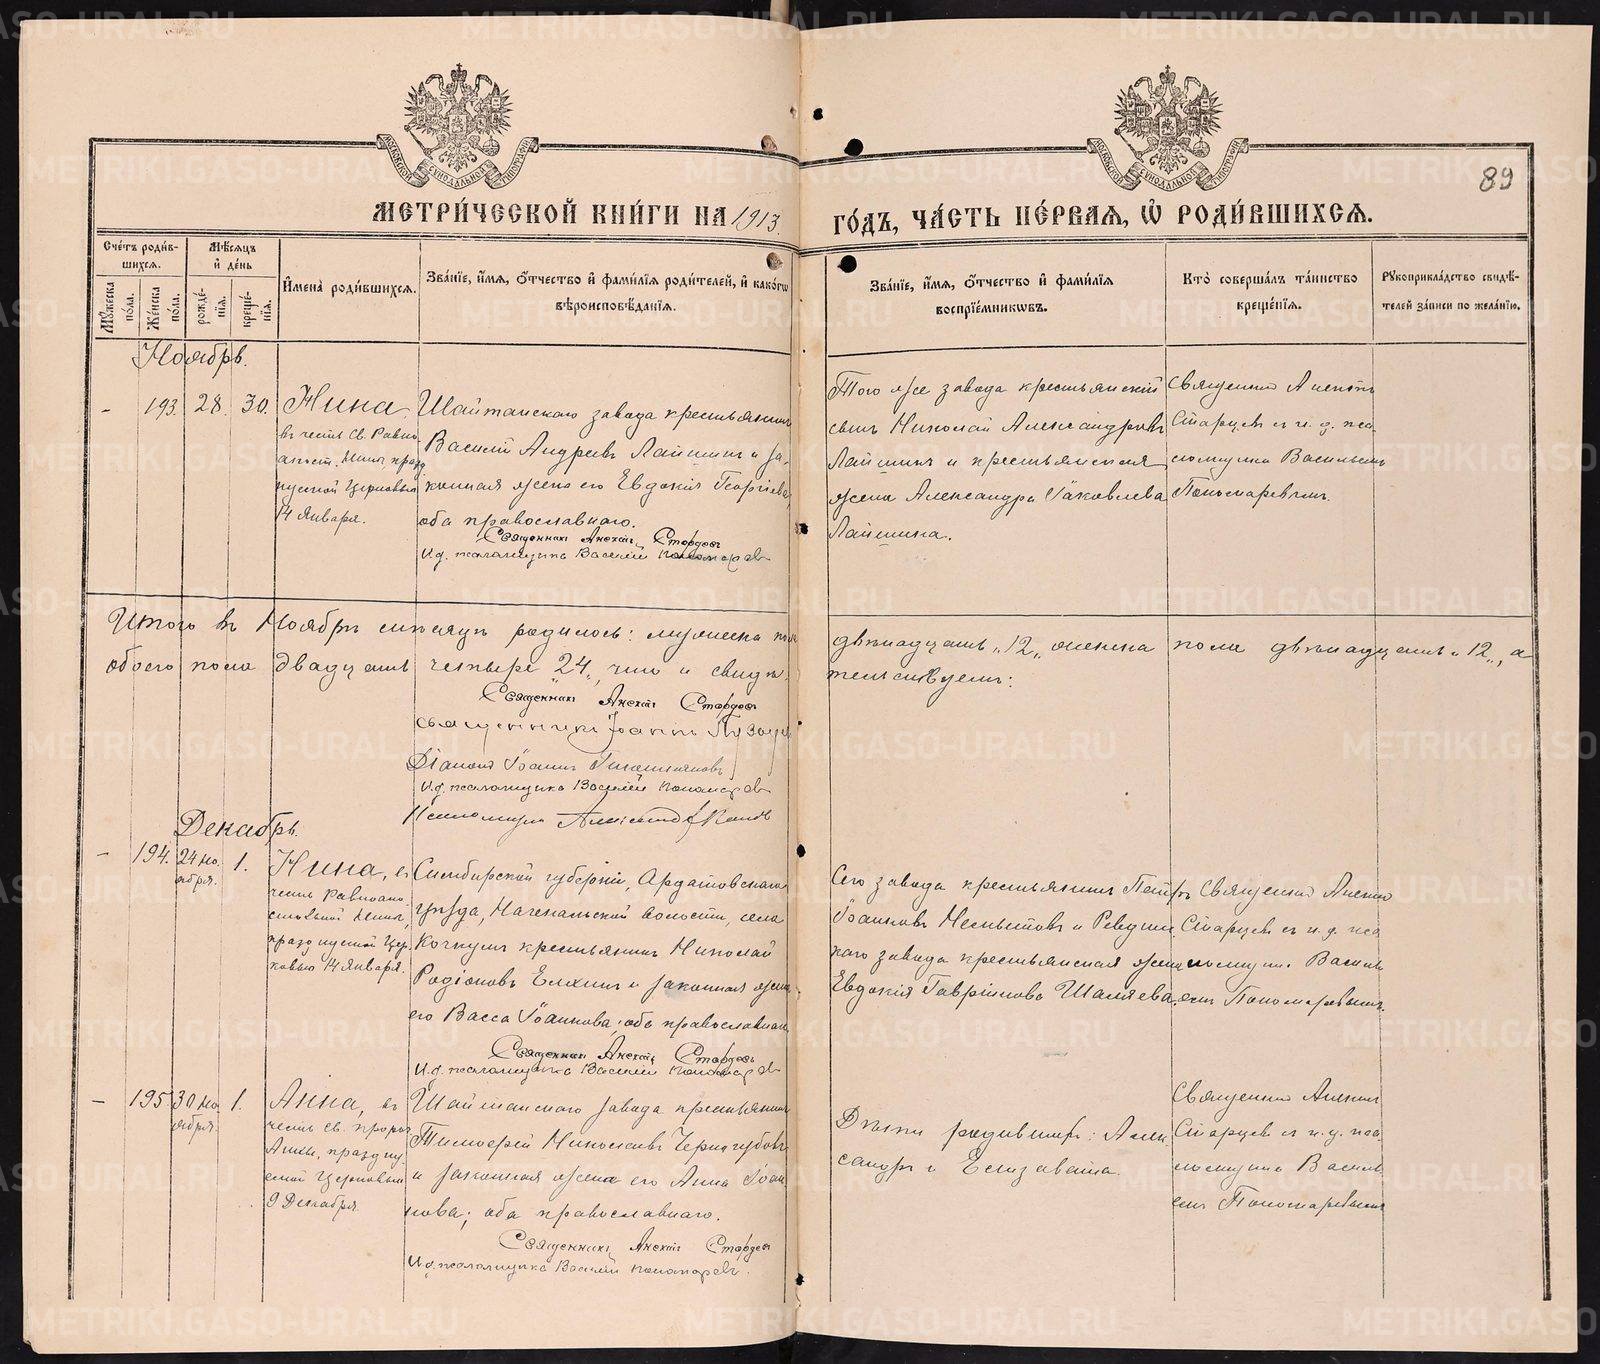 89
МЕТРИ́ЧЕСКОЙ КНИ́ГИ НА 1913 ГО́ДЪ, ЧА́СТЬ ПЕ́РВАѦ, Ѡ҆ РОДИ́ВШИХСѦ.
Сче́тъ роди́в-
шихсѧ.
Мꙋ́жеска пола.
Же́нска пола.
Мѣ́сѧцъ
и҆ де́нь
рожде́-
нїѧ.
креще́-
нїѧ.
И҆мена̀ роди́вшихсѧ.
Зва́нїе, и҆́мѧ, ѻ҆́тчество и҆ фами́лїѧ роди́телей, и҆ како́гѡ
вѣроисповѣ́данїѧ.
Зва́нїе, и҆́мѧ, ѻ҆́тчество и҆ фами́лїѧ
воспрїе́мникѡвъ.
Кто̀ соверша́лъ та́инство
креще́нїѧ.
Рꙋкоприкла́дство свидѣ́-
телей за́писи по жела́нїю.
Ноябрь.
- 193. 28. 30.
Нина
въ честь св. Равно
апост. Нины, празд
нуемой Церковью
14 Января.
Шайтанскаго завода крестьянинъ
Василій Андреевъ Лапшинъ и за-
конная жена его Евдокія Георгіева,
оба православнаго.
Священникъ Алексій Старцевъ
И.д. псаломщика Василій Пономаревъ
Того же завода крестьянскій
сынъ Николай Александровъ
Лапшинъ и крестьянская
жена Александра Іаковлева
Лапшина.
Священникъ Алексій
Старцевъ съ и. д. пса
ломщика Васильемъ
Пономаревымъ.
Итого въ Ноябрѣ мѣсяцѣ родилось: мужеска пола двѣнадцать „12„ женска пола двѣнадцать „12„, а
обоего пола двадцать четыре „24„, что и свидѣтельствуемъ:
Священникъ Алексій Старцевъ
Священникъ Іоаннъ
Діаконъ Іоаннъ
И.д. псаломщика Василій Пономаревъ
Псаломщикъ Александръ
Декабрь.
- 194. 24 но
ября. 1.
Нина, въ
честь Равноапо
стольной Нины,
празднуемой Цер
ковью 14 Января.
Симбирской губерніи, Ардатовскаго
уѣзда, Волости, села
крестьянинъ Николай
Родіоновъ и законная жена
его Васса Іоаннова, оба православнаго.
Священникъ Алексій Старцевъ
И.д. псаломщика Василій Пономаревъ
Сего завода крестьянинъ Петръ
Іоанновъ и Ревдин
скаго завода крестьянская жена
Евдокія Гавріилова Шаляева.
Священникъ Алексій
Старцевъ съ и. д. пса
ломщика Василь
емъ Пономаревымъ.
- 195 30 но
ября. 1.
Анна, въ
честь св. пророч
Анны, праздну
емой Церковью
9 Декабря.
Шайтанскаго завода крестьянинъ
Тимофей Николаевъ Черногубовъ
и законная жена его Анна Іоан
нова; оба православнаго.
Священникъ Алексій Старцевъ
И.д. псаломщика Василій Пономаревъ.
Дѣти Алек
сандръ и Елизавета.
Священникъ Алексій
Старцевъ съ и. д. пса
ломщика Василь
емъ Пономаревымъ
METRIKI.GASO-URAL.RU